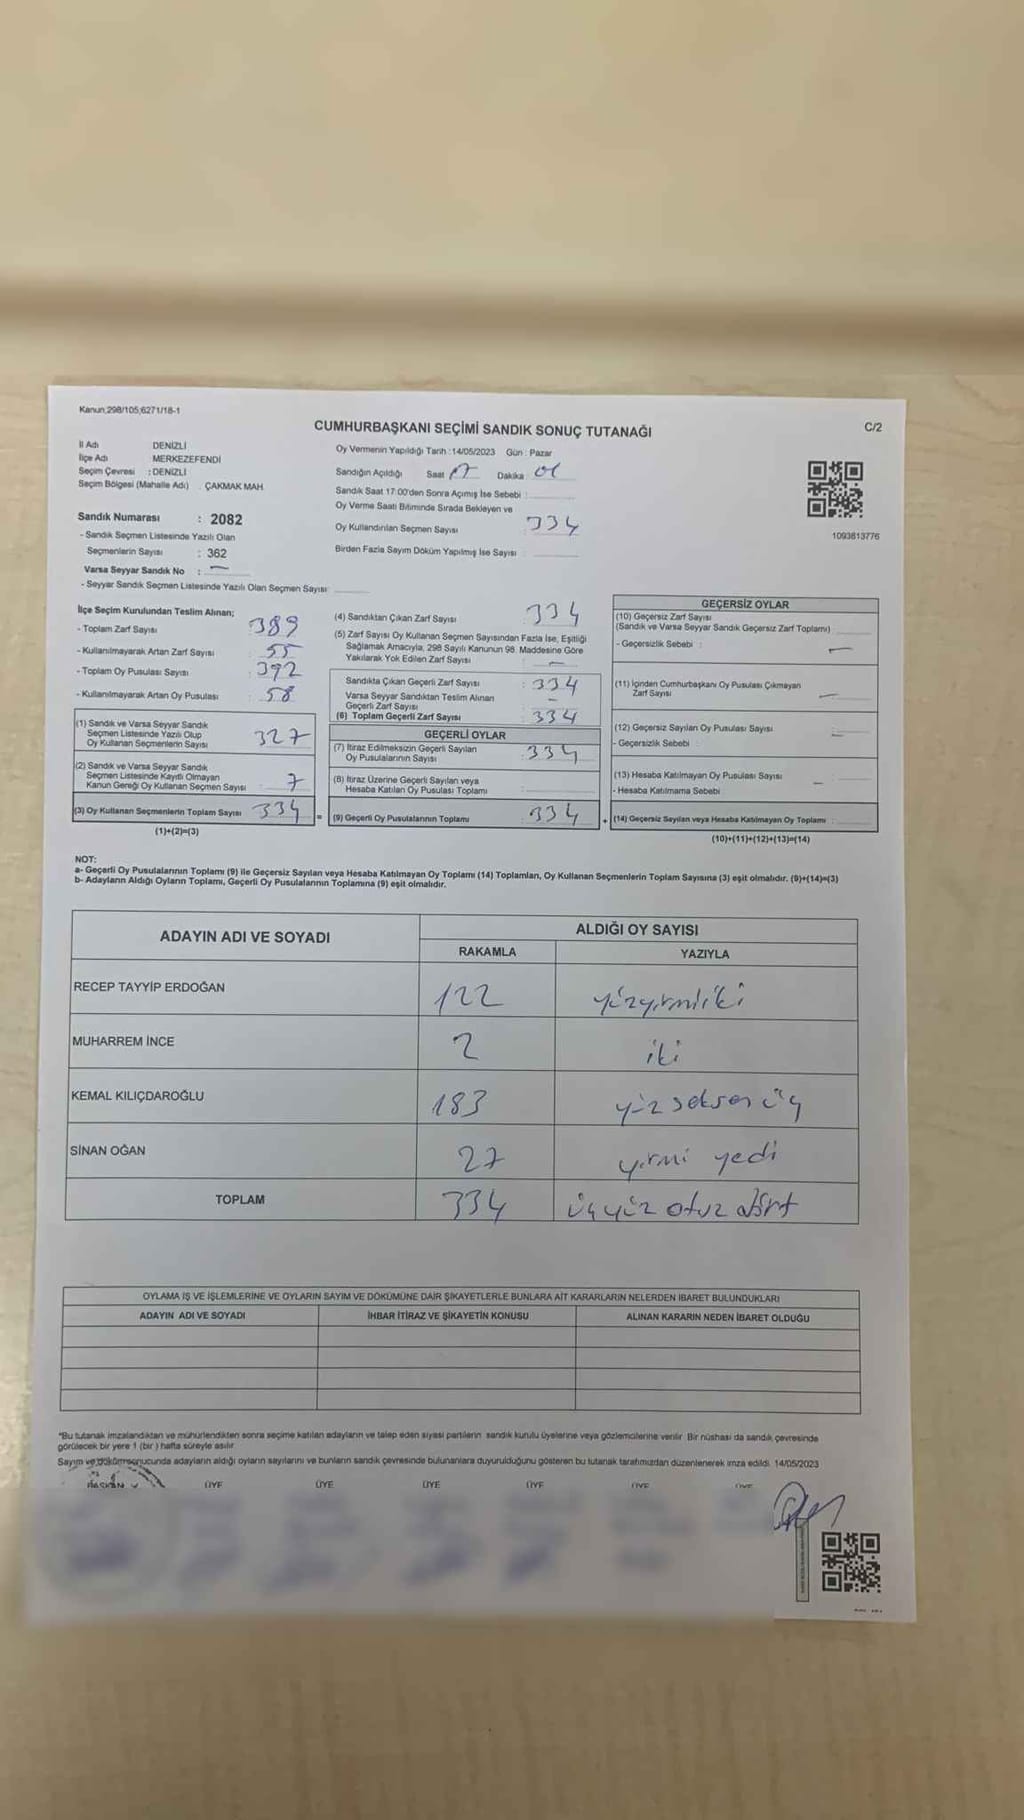 Kanun,298/105;6271/18-1
C/2
CUMHURBAŞKANI SEÇİMİ SANDIK SONUÇ TUTANAĞI
İl Adı DENİZLİ
İlçe Adı MERKEZEFENDİ
Seçim Çevresi : DENİZLİ
Seçim Bölgesi (Mahalle Adı) : ÇAKMAK MAH.
Sandık Numarası : 2082
- Sandık Seçmen Listesinde Yazılı Olan
Seçmenlerin Sayısı : 362
Varsa Seyyar Sandık No : —
- Seyyar Sandık Seçmen Listesinde Yazılı Olan Seçmen Sayısı:
Oy Vermenin Yapıldığı Tarih :14/05/2023 Gün : Pazar
Sandığın Açıldığı Saat 17 Dakika 01
Sandık Saat 17:00'den Sonra Açımış İse Sebebi :
Oy Verme Saati Bitiminde Sırada Bekleyen ve
Oy Kullandırılan Seçmen Sayısı 334
Birden Fazla Sayım Döküm Yapılmış İse Sayısı :
1093813776
İlçe Seçim Kurulundan Teslim Alınan;
- Toplam Zarf Sayısı 389
- Kullanılmayarak Artan Zarf Sayısı 55
- Toplam Oy Pusulası Sayısı 392
- Kullanılmayarak Artan Oy Pusulası 58
(1) Sandık ve Varsa Seyyar Sandık
Seçmen Listesinde Yazılı Olup
Oy Kullanan Seçmenlerin Sayısı 327
(2) Sandık ve Varsa Seyyar Sandık
Seçmen Listesinde Kayıtlı Olmayan
Kanun Gereği Oy Kullanan Seçmen Sayısı 7
(3) Oy Kullanan Seçmenlerin Toplam Sayısı 334
(1)+(2)=(3)
(4) Sandıktan Çıkan Zarf Sayısı 334
(5) Zarf Sayısı Oy Kullanan Seçmen Sayısından Fazla İse, Eşitliği
Sağlamak Amacıyla, 298 Sayılı Kanunun 98. Maddesine Göre
Yakılarak Yok Edilen Zarf Sayısı —
Sandıkta Çıkan Geçerli Zarf Sayısı : 334
Varsa Seyyar Sandıktan Teslim Alınan
Geçerli Zarf Sayısı —
(6) Toplam Geçerli Zarf Sayısı 334
GEÇERLİ OYLAR
(7) İtiraz Edilmeksizin Geçerli Sayılan
Oy Pusulalarının Sayısı 334
(8) İtiraz Üzerine Geçerli Sayılan veya
Hesaba Katılan Oy Pusulası Toplamı
= (9) Geçerli Oy Pusulalarının Toplamı 334
GEÇERSİZ OYLAR
(10) Geçersiz Zarf Sayısı
(Sandık ve Varsa Seyyar Sandık Geçersiz Zarf Toplamı)
- Geçersizlik Sebebi : —
(11) İçinden Cumhurbaşkanı Oy Pusulası Çıkmayan
Zarf Sayısı —
(12) Geçersiz Sayılan Oy Pusulası Sayısı —
- Geçersizlik Sebebi
(13) Hesaba Katılmayan Oy Pusulası Sayısı —
- Hesaba Katılmama Sebebi
+ (14) Geçersiz Sayılan veya Hesaba Katılmayan Oy Toplamı :
(10)+(11)+(12)+(13)=(14)
NOT:
a- Geçerli Oy Pusulalarının Toplamı (9) ile Geçersiz Sayılan veya Hesaba Katılmayan Oy Toplamı (14) Toplamları, Oy Kullanan Seçmenlerin Toplam Sayısına (3) eşit olmalıdır. (9)+(14)=(3)
b- Adayların Aldığı Oyların Toplamı, Geçerli Oy Pusulalarının Toplamına (9) eşit olmalıdır.
ADAYIN ADI VE SOYADI
ALDIĞI OY SAYISI
RAKAMLA YAZIYLA
RECEP TAYYİP ERDOĞAN 122 yüzyirmiiki
MUHARREM İNCE 2 iki
KEMAL KILIÇDAROĞLU 183 yüz seksen üç
SİNAN OĞAN 27 yirmi yedi
TOPLAM 334 üçyüz otuz dört
OYLAMA İŞ VE İŞLEMLERİNE VE OYLARIN SAYIM VE DÖKÜMÜNE DAİR ŞİKAYETLERLE BUNLARA AİT KARARLARIN NELERDEN İBARET BULUNDUKLARI
ADAYIN ADI VE SOYADI İHBAR İTİRAZ VE ŞİKAYETİN KONUSU ALINAN KARARIN NEDEN İBARET OLDUĞU
*Bu tutanak imzalandıktan ve mühürlendikten sonra seçime katılan adayların ve talep eden siyasi partilerin sandık kurulu üyelerine veya gözlemcilerine verilir. Bir nüshası da sandık çevresinde
görülecek bir yere 1 (bir ) hafta süreyle asılır.
Sayım ve dökümsonucunda adayların aldığı oyların sayılarını ve bunların sandık çevresinde bulunanlara duyurulduğunu gösteren bu tutanak tarafımızdan düzenlenerek imza edildi. 14/05/2023
BAŞKAN ÜYE ÜYE ÜYE ÜYE ÜYE ÜYE